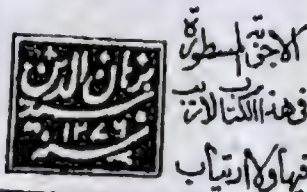 الاجوبة المسطورة
فى هذا الكتاب لاريب
فيها ولا ارتياب
برهان الدين
سيد
١٢٧٩